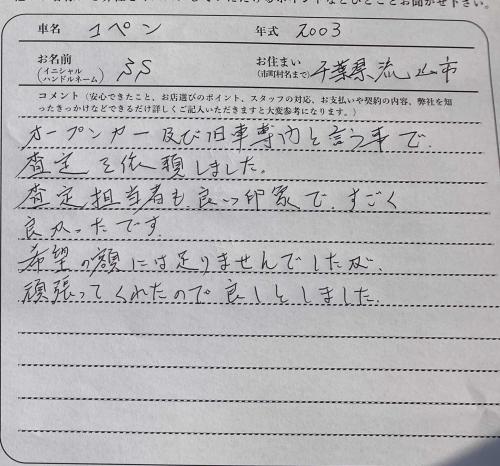 車名 コペン 年式 2003
お名前 (イニシャル ハンドルネーム) SS お住まい (市町村名まで) 千葉県流山市
コメント (安心できたこと、お店選びのポイント、スタッフの対応、お支払いや契約の内容、弊社を知
ったきっかけなどできるだけ詳しくご記入いただきますと大変参考になります。)
オープンカー及び旧車専門と言う事で
査定を依頼しました。
査定担当者も良い印象で、すごく
良かったです。
希望の額には足りませんでしたが、
頑張ってくれたので良しとしました。